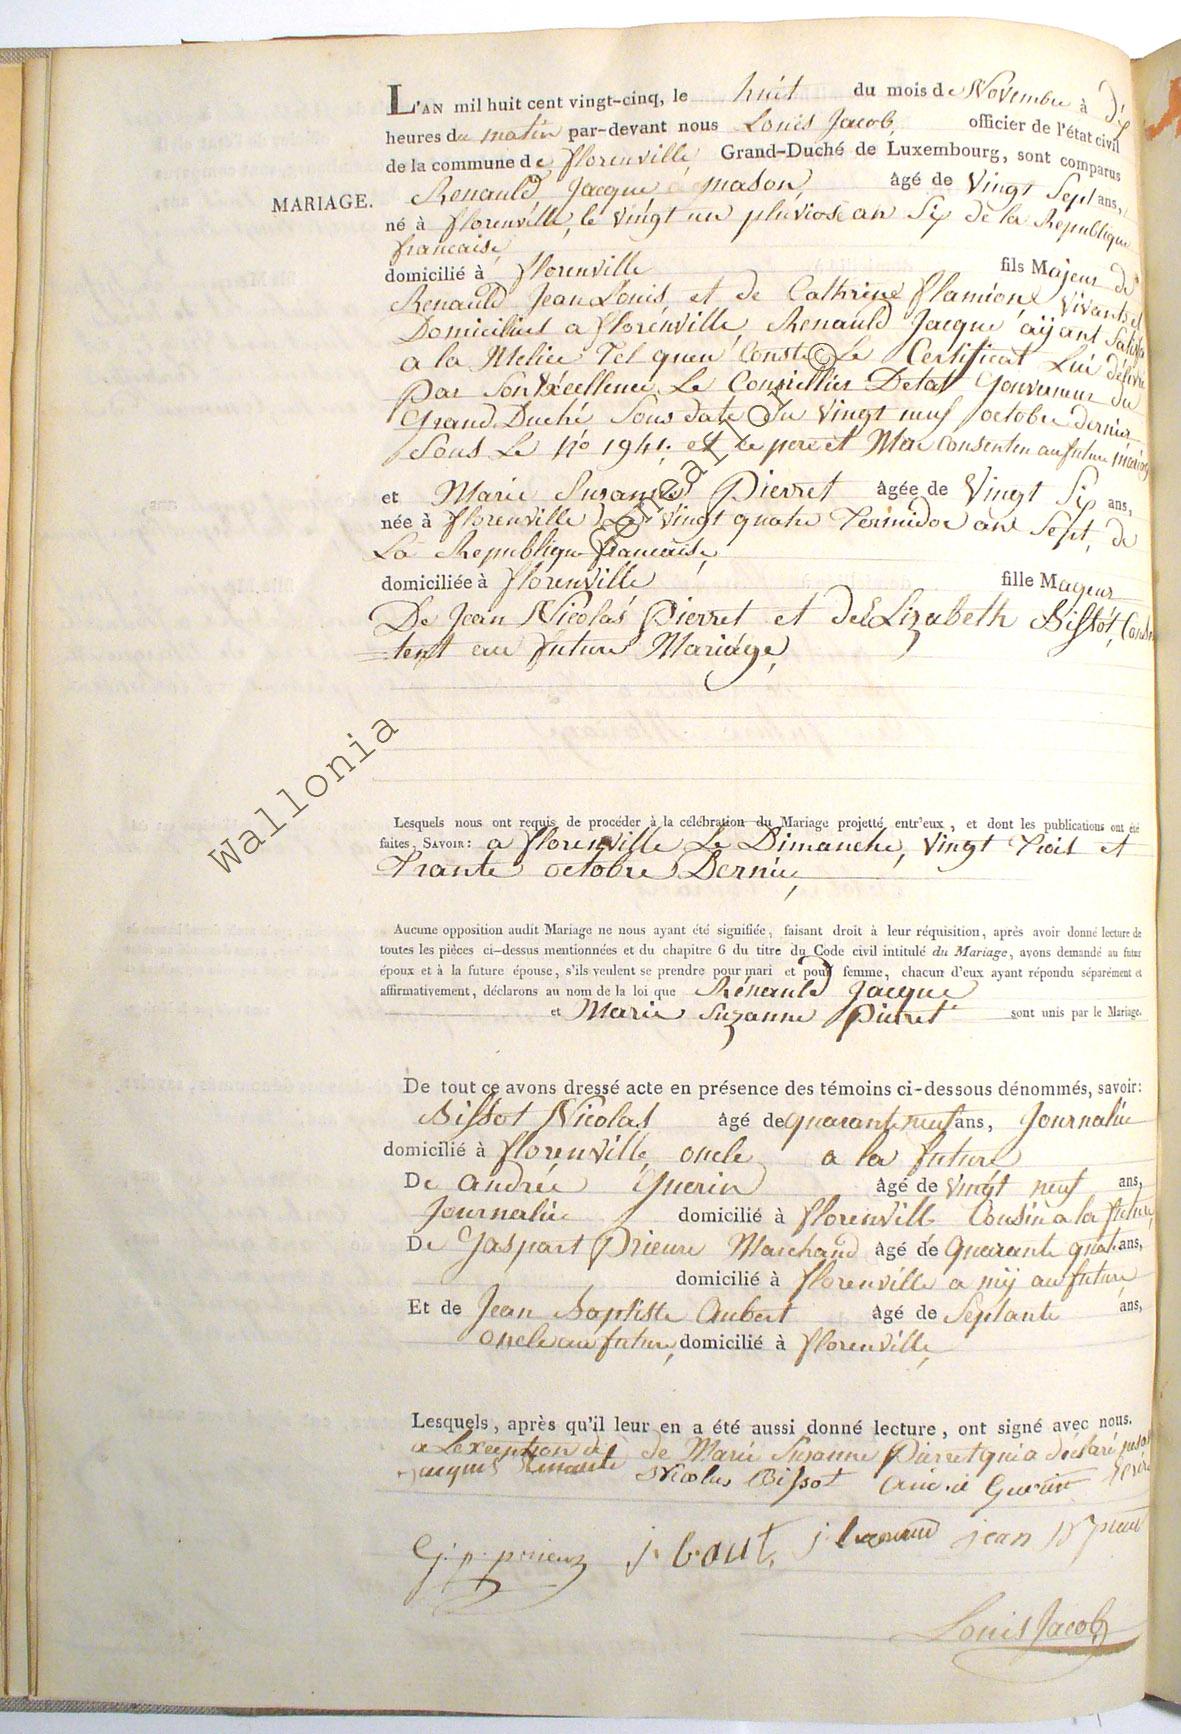 L'AN mil huit cent vingt-cinq, le huit du mois de Novembre à dix
heures du matin par-devant nous Louis Jacob, officier de l'état civil
de la commune de florenville Grand-Duché de Luxembourg, sont comparus
MARIAGE.
Renauld Jacque mason, âgé de Vingt Sept ans,
né à florenville, le vingt un pluviose an Six de la Republique
francaise,
domicilié à florenville fils Majeur de
Renauld Jean Louis et de Cathrine flamion Vivants et
Domiciliés a florenville Renauld Jacque aÿant
a la Melice Tel quen Conste Le Certificat Lui délivré
Par Son Excellence Le Conseillier Detat Gouverneur du
Grand Duché Sous date du Vingt neuf octobre dernier
Sous Le No 1941. et le pere et Mere consenten au future mariage
et Marie Susanne Pierret âgée de Vingt Six ans,
née à florenville Le Vingt quatre Termidor an Sept, de
La Republique francaise,
domiciliée à florenville fille Mageur
De Jean Nicolas Pierret et de Elizabeth Bissot, Consen
=tent au future Mariage,
Lesquels nous ont requis de procéder à la célébration du Mariage projetté entr'eux, et dont les publications ont été
faites, SAVOIR: a florenville Le Dimanche, Vingt Trois et
Trante octobre Dernier,
Aucune opposition audit Mariage ne nous ayant été signifiée, faisant droit à leur réquisition, après avoir donné lecture de
toutes les pièces ci-dessus mentionnées et du chapitre 6 du titre du Code civil intitulé du Mariage, avons demandé au futur
époux et à la future épouse, s'ils veulent se prendre pour mari et pour femme, chacun d'eux ayant répondu séparément et
affirmativement, déclarons au nom de la loi que Renauld Jacque
et Marie Suzanne Pierret sont unis par le Mariage.
De tout ce avons dressé acte en présence des témoins ci-dessous dénommés, savoir:
Bissot Nicolas âgé de quarante neuf ans, Journalie
domicilié à florenville oncle a la future
De andrée Guerin âgé de vingt neuf ans,
Journalie domicilié à florenvill Cousin a la future
De Gaspart Prieure Marchand âgé de Quarante quat. ans,
domicilié à florenville a mij au future
Et de Jean Baptiste Aubert âgé de Septante ans,
oncle au future, domicilié à florenville,
Lesquels, après qu'il leur en a été aussi donné lecture, ont signé avec nous.
a Lexception de de Marie Susanne Pierret qui a déclaré
Jacques Renauld Nicolas Bissot André Guerin
G. p. prieur j. b. aut. jean
Louis Jacob
Wallonia
©